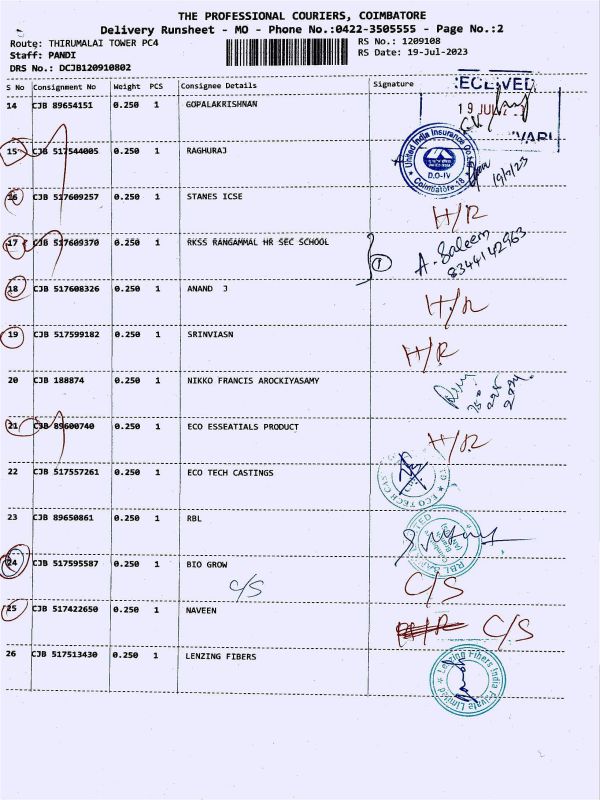 THE PROFESSIONAL COURIERS, COIMBATORE
Delivery Runsheet - MO - Phone No.:0422-3505555 - Page No.:2
Route: THIRUMALAI TOWER PC4 RS No.: 1209108
Staff: PANDI RS Date: 19-Jul-2023
DRS No.: DCJB120910802
S No Consignment No Weight PCS Consignee Details Signature
14 CJB 89654151 0.250 1 GOPALAKRISHNAN
19 JUL
15 CJB 517544005 0.250 1 RAGHURAJ
United India Insurance Co Ltd
D.O-IV
Coimbatore-18
19/7/23
16 CJB 517609257 0.250 1 STANES ICSE H/R
17 CJB 517609370 0.250 1 RKSS RANGAMMAL HR SEC SCHOOL
A. Saleem
8344142963
18 CJB 517608326 0.250 1 ANAND J H/R
19 CJB 517599182 0.250 1 SRINVIASN H/R
20 CJB 188874 0.250 1 NIKKO FRANCIS AROCKIYASAMY
21 CJB 89600740 0.250 1 ECO ESSEATIALS PRODUCT H/R
22 CJB 517557261 0.250 1 ECO TECH CASTINGS
ECO TECH CAS
23 CJB 89650861 0.250 1 RBL
24 CJB 517595587 0.250 1 BIO GROW C/S
C/S
25 CJB 517422650 0.250 1 NAVEEN C/S
26 CJB 517513430 0.250 1 LENZING FIBERS
Lenzing Fibers India Private Limited